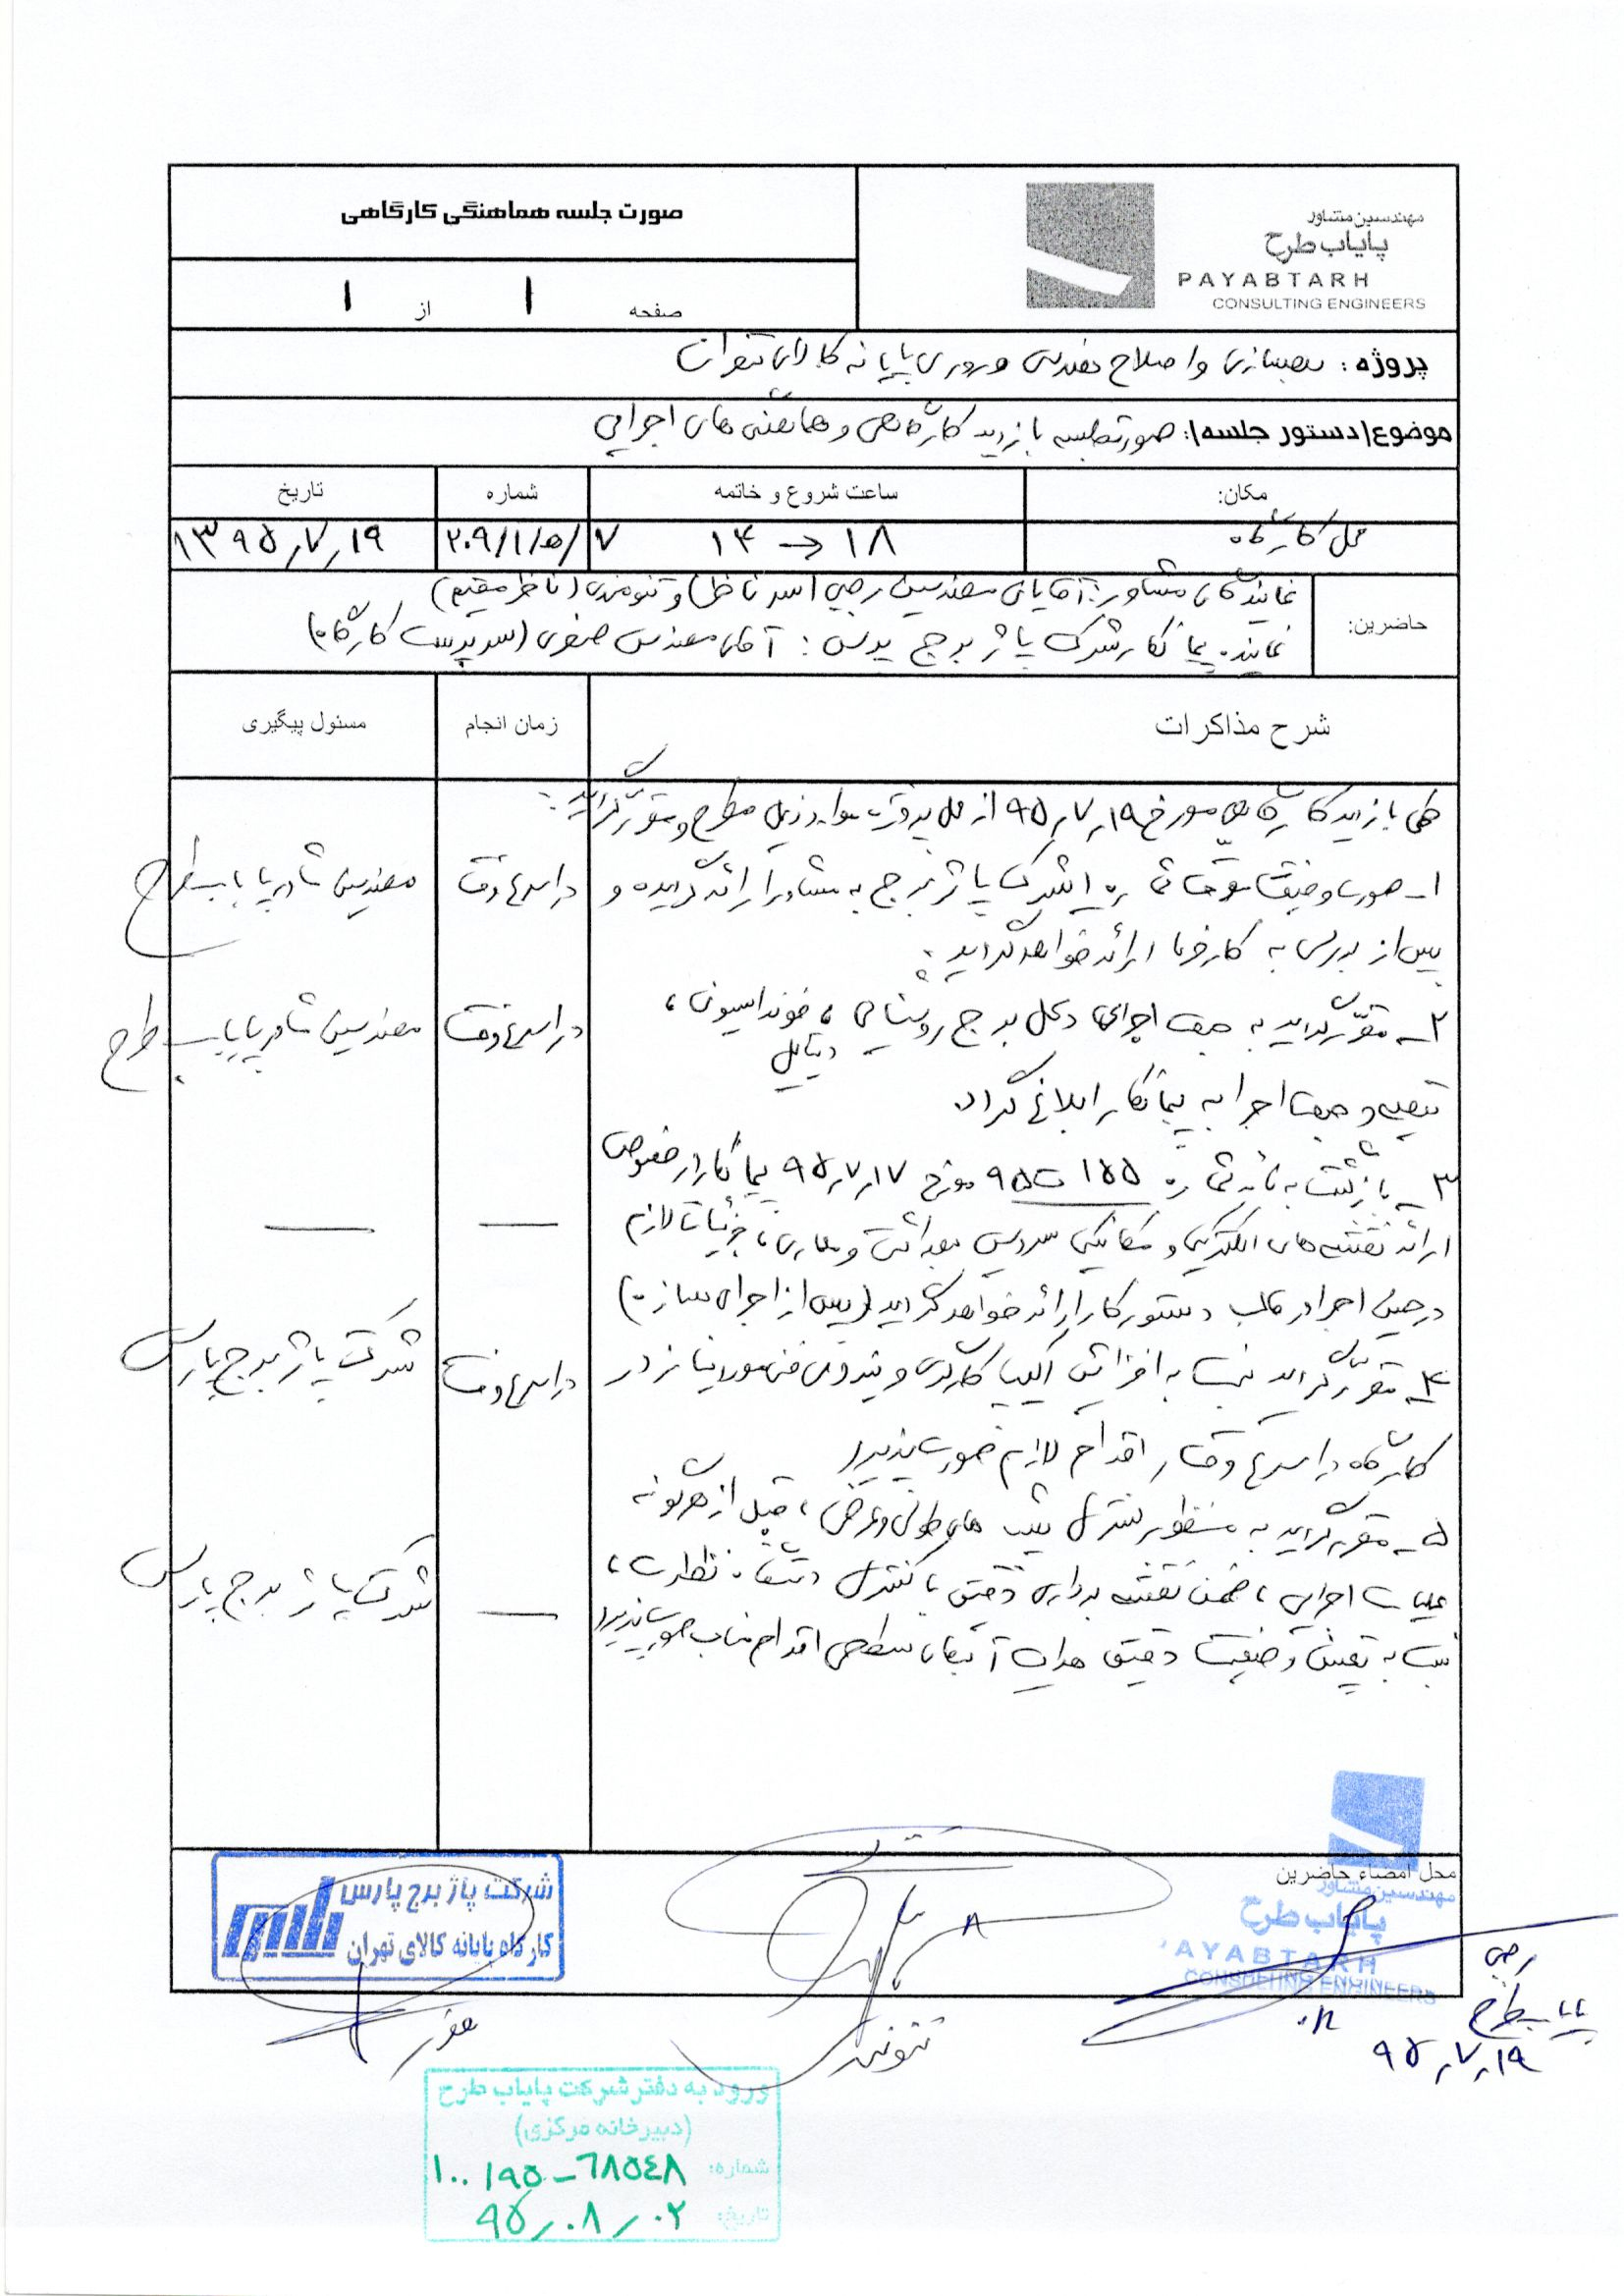 صورت جلسه هماهنگی کارگاهی
مهندسین مشاور
پایاب طرح
PAYABTARH
CONSULTING ENGINEERS
صفحه ۱ از ۱
پروژه : بهسازی و اصلاح هندسی ورودی پایانه کالای تهران
موضوع(دستور جلسه): صورتجلسه بازدید کارگاهی و هماهنگی های اجرایی
مکان: ساعت شروع و خاتمه شماره تاریخ
محل کارگاه ۱۴ → ۱۸ ۲۰۹/۱/ه/۷ ۱۳۹۵٫۷٫۱۹
حاضرین:
نمایندگان مشاور: آقایان مهندسین رجبی (سرناظر) و تنومندی (ناظر مقیم)
نماینده پیمانکار شرکت پاژ برج پارس : آقای مهندس صفری (سرپرست کارگاه)
شرح مذاکرات زمان انجام مسئول پیگیری
طی بازدید کارگاهی مورخ ۹۵٫۷٫۱۹ از محل پروژه موارد ذیل مطرح و مقرر گردید:
۱- صورت وضعیت موقت شماره ۱ شرکت پاژ برج به مشاور ارائه گردیده و در اسرع وقت مهندسین مشاور پایاب طرح
پس از بررسی به کارفرما ارائه خواهد گردید.
۲- مقرر گردید به جهت اجرای دکل برج روشنایی، فونداسیون، در اسرع وقت مهندسین مشاور پایاب طرح
دیتایل
تهیه و جهت اجرا به پیمانکار ابلاغ گردد.
۳- بازگشت به نامه شماره ۱۵۵ ت ۹۵ مورخ ۹۵٫۷٫۱۷ پیمانکار در خصوص
ارائه نقشه های الکتریکی و مکانیکی سرویس بهداشتی و معماری، جزئیات لازم — —
در حین اجرا در قالب دستور کار ارائه خواهد گردید (پس از اجرای سازه)
۴- مقرر گردید نسبت به افزایش اکیپ کارگری و نیروی فنی مورد نیاز در در اسرع وقت شرکت پاژ برج پارس
کارگاه در اسرع وقت اقدام لازم صورت پذیرد
۵- مقرر گردید به منظور کنترل شیب های طولی و عرضی، قبل از هرگونه
عملیات اجرایی، ضمن نقشه برداری دقیق با کنترل دستگاه نظارت، — شرکت پاژ برج پارس
نسبت به تعیین وضعیت دقیق هدایت آبهای سطحی اقدام مناسب صورت پذیرد
محل امضاء حاضرین
مهندسین مشاور
پایاب طرح
PAYABTARH
CONSULTING ENGINEERS
شرکت پاژ برج پارس
کارگاه پایانه کالای تهران
رجبی
پایاب طرح
۹۵٫۷٫۱۹
تنومندی
صفری
ورود به دفتر شرکت پایاب طرح
(دبیرخانه مرکزی)
شماره: ۱۰۰۱۹۵-٦٨٥٤٨
تاریخ: ۹۵٫۰۸٫۰۲